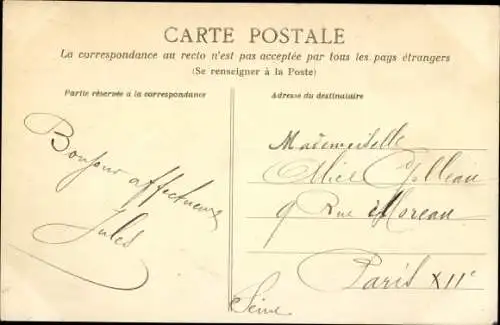 CARTE POSTALE
La correspondance au recto n'est pas acceptée par tous les pays étrangers
(Se renseigner à la Poste)
Partie réservée à la correspondance
Adresse du destinataire
Bonjour affectueux
Jules
Mademoiselle
9 Rue Moreau
Paris XIIe
Seine